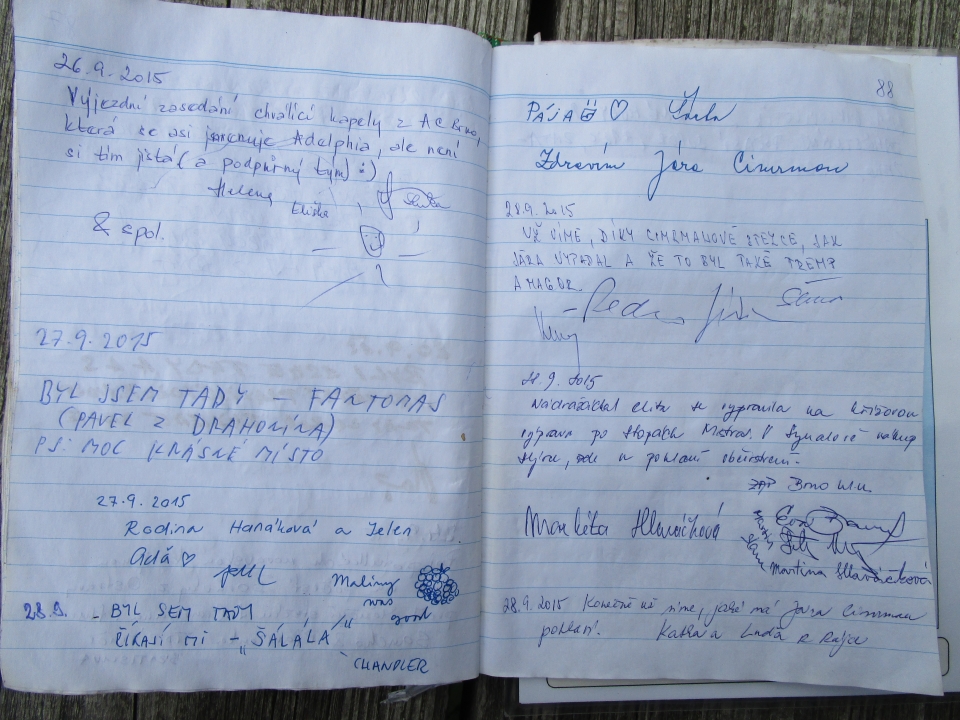 26.9.2015
Výjezdní zasedání chválící kapely z AC Brno,
která se asi jmenuje Adelphia, ale není
si tím jistá (a podpůrný tým) :)
Helena
Eliška
& spol.
27.9.2015
BYL JSEM TADY – FANTOMAS
(PAVEL Z DRAHONÍNA)
PS: MOC KRÁSNÉ MÍSTO
27.9.2015
Rodina Hanáková a Jelen
Adā ♡
Maliny
was
good
28.9. - BYL SEM TADY
ŘÍKAJÍ MI – „ŠÁLÁLÁ“
CHANDLER
88
PÁJA ♡
Zdravím Jára Cimrman
28.9.2015
UŽ VÍME, DÍKY CIMRMANOVĚ STEZCE, JAK
JÁRA VYPADAL A ŽE TO BYL TAKÉ TREMP
A MAGOR.
28.9.2015
Nádražácká elita se vypravila na křížovou
výpravu po stopách Mistra. V Synalově nákup
sýru, zde v pokloně občerstvení.
Brno
Markéta Hlaváčková
Martina Hlaváčková
28.9.2015 Konečně už víme, jaké má Jára Cimrman
poklaní. Katka a Luďa z Rájce